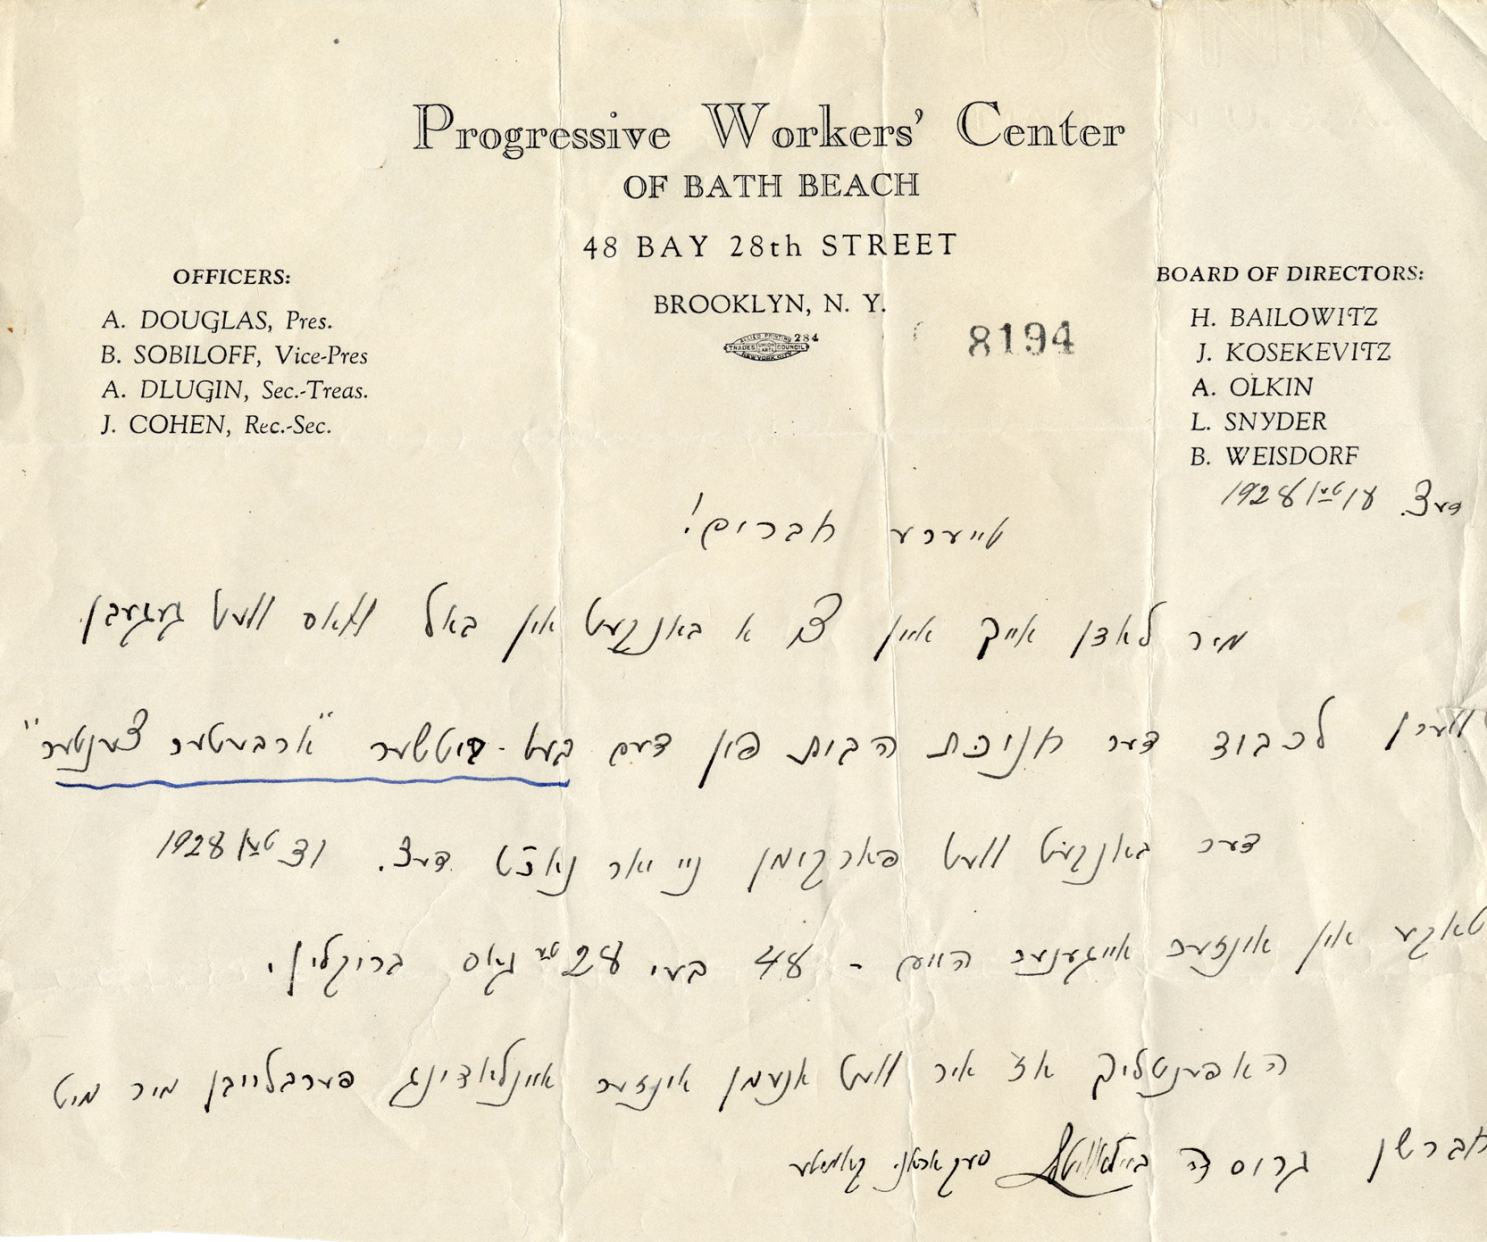 Progressive Workers' Center
OF BATH BEACH
48 BAY 28th STREET
BROOKLYN, N. Y.
ALLIED PRINTING
TRADES UNION LABEL COUNCIL
NEW YORK CITY
284
8194
OFFICERS:
A. DOUGLAS, Pres.
B. SOBILOFF, Vice-Pres
A. DLUGIN, Sec.-Treas.
J. COHEN, Rec.-Sec.
BOARD OF DIRECTORS:
H. BAILOWITZ
J. KOSEKEVITZ
A. OLKIN
L. SNYDER
B. WEISDORF
דעצ. 18טן 1928
טייערע חברים!
מיר לאדן אייך איין צו א באנקעט אין באל וואס וועט געגעבן
ווערן לכבוד דער חנוכת הבית פון דעם בעט-ביטשער "ארבעטער צענטער"
דער באנקעט וועט פארקומען ניי יאר נאכט דעצ. 31טן 1928
טאקע אין אונזער אייגענער היים - 48 בעי 28טע גאס ברוקלין.
האפענטליך אז איר וועט אנעמן אונזער איינלאדונג פערבלייבן מיר מיט
חברשן גרוס ה. ביילאוויטש